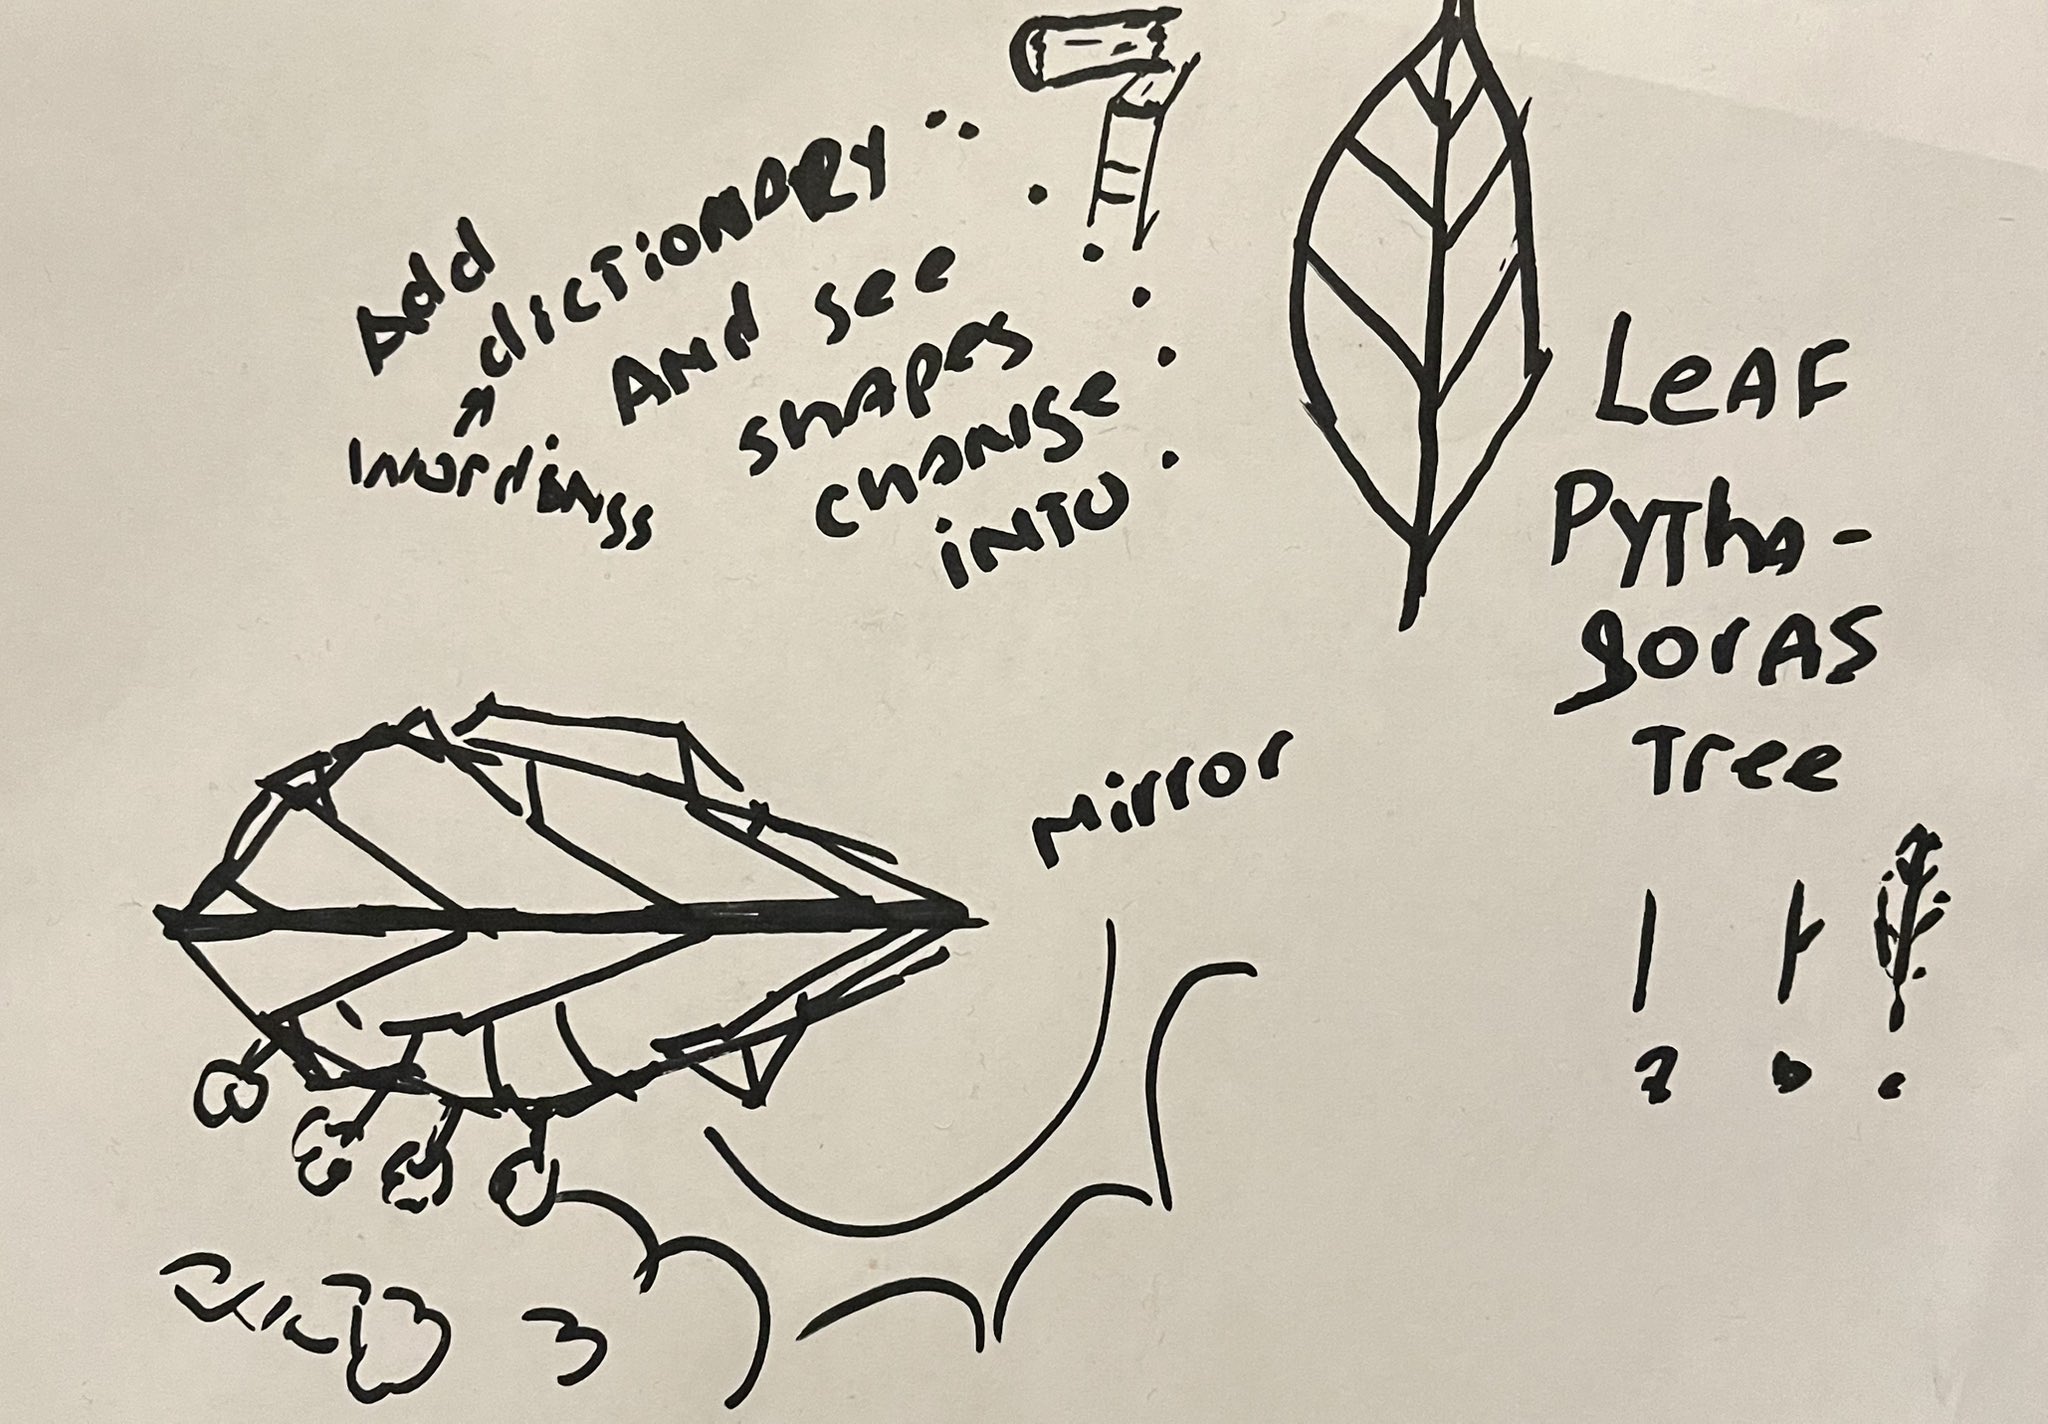 Add dictionary
wordings
And see
shapes
change
into
Leaf
Pytha-
goras
Tree
Mirror